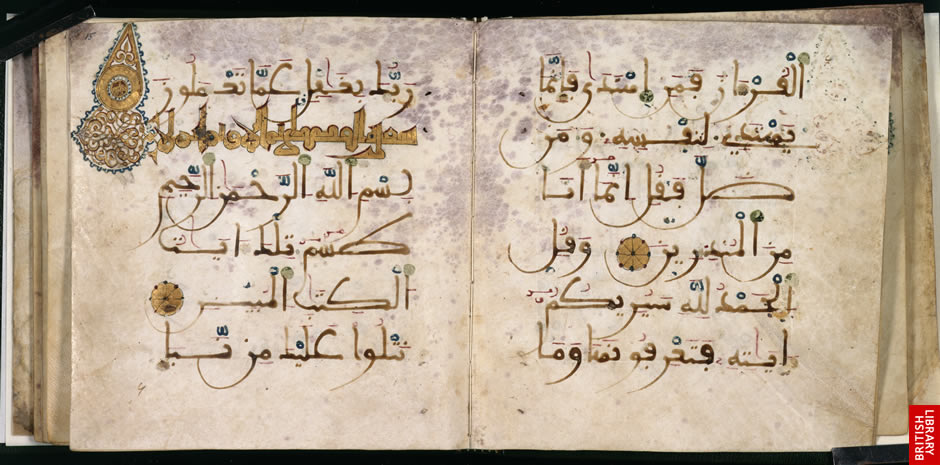 الْقُرْءَانَ فَمَنِ اهْتَدَى فَإِنَّمَا
يَهْتَدِي لِنَفْسِهِ وَمَن
ضَلَّ فَقُلْ إِنَّمَا أَنَا
مِنَ الْمُنذِرِينَ وَقُلِ
الْحَمْدُ لِلَّهِ سَيُرِيكُمْ
ءَايَتِهِ فَتَعْرِفُونَهَا وَمَا
رَبُّكَ بِغَفِلٍ عَمَّا تَعْمَلُونَ
بِسْمِ اللَّهِ الرَّحْمَنِ الرَّحِيمِ
طسم تِلْكَ ءَايَتُ
الْكِتَبِ الْمُبِينِ
نَتْلُوا عَلَيْكَ مِن نَّبَإِ
BRITISH
LIBRARY